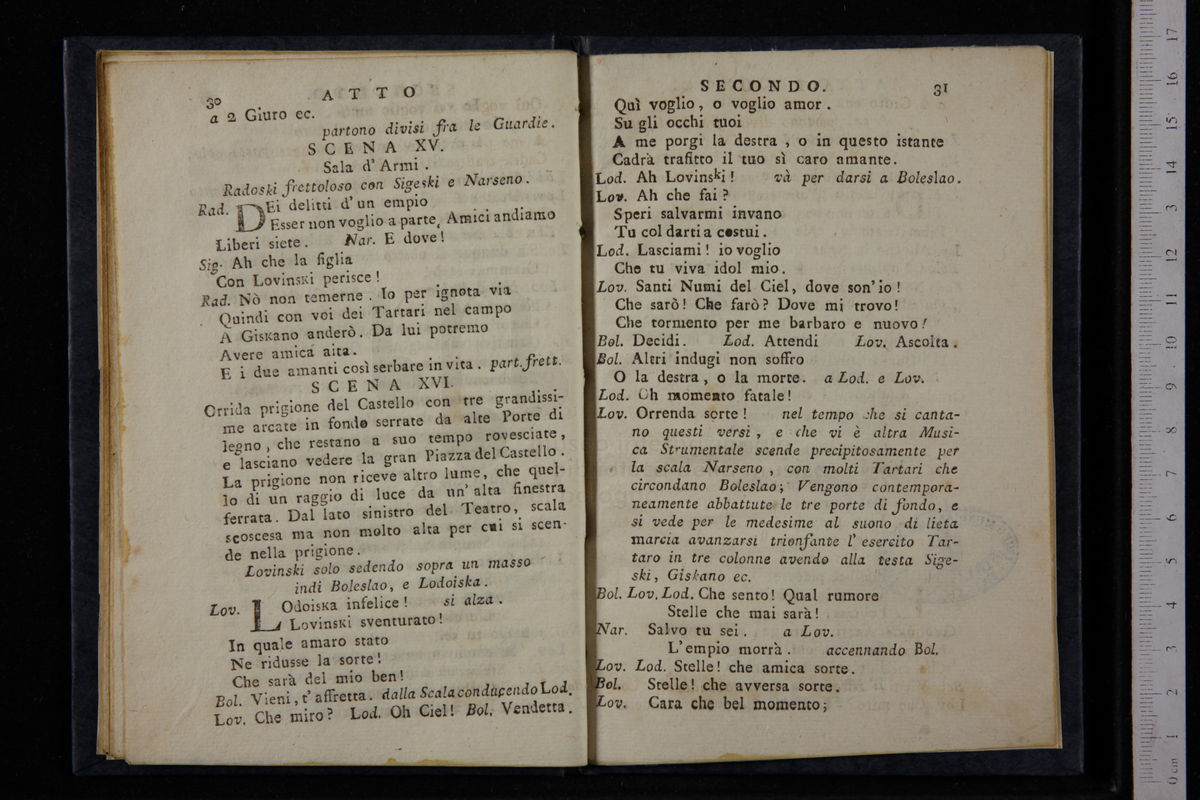 30 ATTO
a 2 Giuro ec.
partono divisi fra le Guardie.
SCENA XV.
Sala d'Armi.
Radoski frettoloso con Sigeski e Narseno.
Rad. DEi delitti d'un empio
Esser non voglio a parte, Amici andiamo
Liberi siete. Nar. E dove!
Sig. Ah che la figlia
Con Lovinski perisce!
Rad. Nò non temerne. Io per ignota via
Quindi con voi dei Tartari nel campo
A Giskano anderò. Da lui potremo
Avere amica aita.
E i due amanti così serbare in vita. part. frett.
SCENA XVI.
Orrida prigione del Castello con tre grandissi-
me arcate in fondo serrate da alte Porte di
legno, che restano a suo tempo rovesciate,
e lasciano vedere la gran Piazza del Castello.
La prigione non riceve altro lume, che quel-
lo di un raggio di luce da un'alta finestra
ferrata. Dal lato sinistro del Teatro, scala
scoscesa ma non molto alta per cui si scen-
de nella prigione.
Lovinski solo sedendo sopra un masso
indi Boleslao, e Lodoiska.
Lov. LOdoiska infelice! si alza.
Lovinski sventurato!
In quale amaro stato
Ne ridusse la sorte!
Che sarà del mio ben!
Bol. Vieni, t'affretta. dalla Scala conducendo Lod.
Lov. Che miro? Lod. Oh Ciel! Bol. Vendetta.
SECONDO. 31
Quì voglio, o voglio amor.
Su gli occhi tuoi
A me porgi la destra, o in questo istante
Cadrà trafitto il tuo sì caro amante.
Lod. Ah Lovinski! và per darsi a Boleslao.
Lov. Ah che fai?
Speri salvarmi invano
Tu col darti a costui.
Lod. Lasciami! io voglio
Che tu viva idol mio.
Lov. Santi Numi del Ciel, dove son'io!
Che sarò! Che farò? Dove mi trovo!
Che tormento per me barbaro e nuovo!
Bol. Decidi. Lod. Attendi Lov. Ascolta.
Bol. Altri indugi non soffro
O la destra, o la morte. a Lod. e Lov.
Lod. Oh momento fatale!
Lov. Orrenda sorte! nel tempo che si canta-
no questi versi, e che vi è altra Musi-
ca Strumentale scende precipitosamente per
la scala Narseno, con molti Tartari che
circondano Boleslao; Vengono contempora-
neamente abbattute le tre porte di fondo, e
si vede per le medesime al suono di lieta
marcia avanzarsi trionfante l'esercito Tar-
taro in tre colonne avendo alla testa Sige-
ski, Giskano ec.
Bol. Lov. Lod. Che sento! Qual rumore
Stelle che mai sarà!
Nar. Salvo tu sei. a Lov.
L'empio morrà. accennando Bol.
Lov. Lod. Stelle! che amica sorte.
Bol. Stelle! che avversa sorte.
Lov. Cara che bel momento;
0 cm 1 2 3 4 5 6 7 8 9 10 11 12 13 14 15 16 17